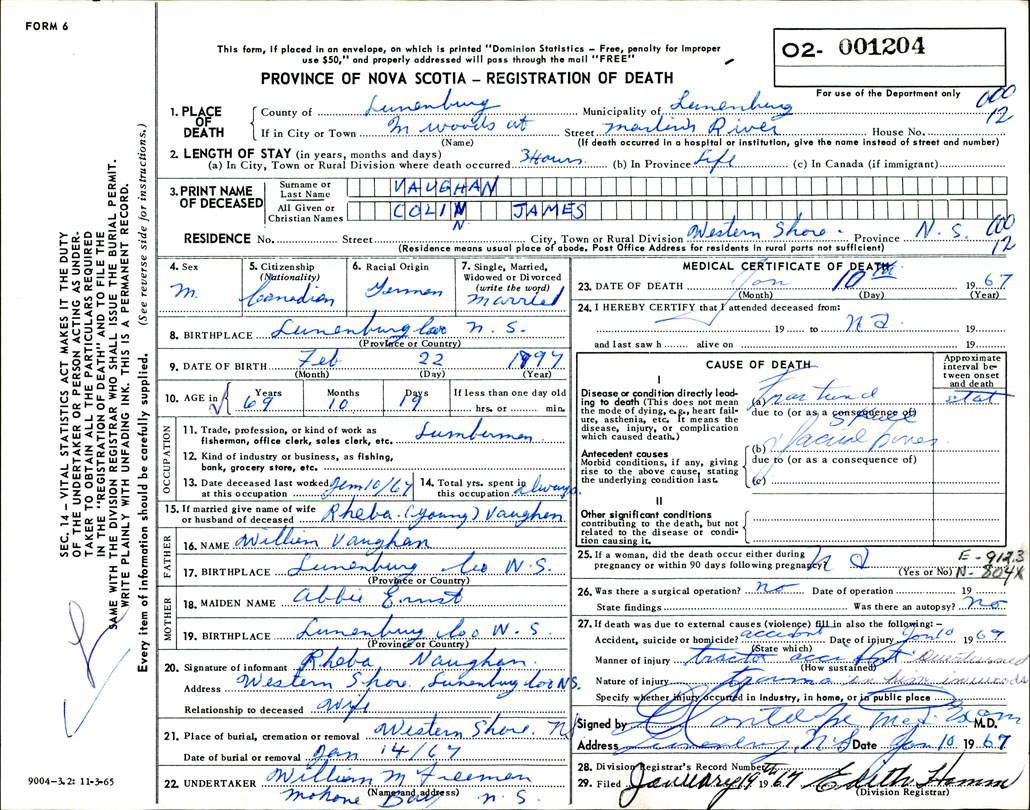 FORM 6
This form, if placed in an envelope, on which is printed "Dominion Statistics – Free, penalty for improper
use $50," and properly addressed will pass through the mail "FREE"
O2- 001204
For use of the Department only
PROVINCE OF NOVA SCOTIA – REGISTRATION OF DEATH
000
12
1. PLACE OF DEATH
County of Lunenburg Municipality of Lunenburg
If in City or Town In woods at Street Martin's River House No.
(Name) (If death occurred in a hospital or institution, give the name instead of street and number)
2. LENGTH OF STAY (in years, months and days)
(a) In City, Town or Rural Division where death occurred 3 Hours (b) In Province Life (c) In Canada (if immigrant)
3. PRINT NAME OF DECEASED
Surname or Last Name VAUGHAN
All Given or Christian Names COLIN JAMES
N.
RESIDENCE No. Street City, Town or Rural Division Western Shore - Province N. S. 000
12
(Residence means usual place of abode. Post Office Address for residents in rural parts not sufficient)
4. Sex
M.
5. Citizenship
(Nationality)
Canadian
6. Racial Origin
German
7. Single, Married, Widowed or Divorced
(write the word)
Married
8. BIRTHPLACE Lunenburg Co N. S.
(Province or Country)
9. DATE OF BIRTH Feb 22 1897
(Month) (Day) (Year)
10. AGE in
Years Months Days If less than one day old
69 10 19 hrs. or min.
OCCUPATION
11. Trade, profession, or kind of work as
fisherman, office clerk, sales clerk, etc. Lumberman
12. Kind of industry or business, as fishing,
bank, grocery store, etc.
13. Date deceased last worked at this occupation Jan 10/67
14. Total yrs. spent in this occupation always
15. If married give name of wife
or husband of deceased Rheba (Young) Vaughan
FATHER
16. NAME William Vaughan
17. BIRTHPLACE Lunenburg Co N. S.
(Province or Country)
MOTHER
18. MAIDEN NAME Abbie Ernst
19. BIRTHPLACE Lunenburg Co N. S.
(Province or Country)
20. Signature of informant Rheba Vaughan
Address Western Shore, Lunenburg Co NS.
Relationship to deceased Wife
21. Place of burial, cremation or removal Western Shore. NS
Date of burial or removal Jan 14/67
22. UNDERTAKER William M Freeman
(Name and address)
Mahone Bay N. S.
MEDICAL CERTIFICATE OF DEATH
23. DATE OF DEATH Jan 10th 1967
(Month) (Day) (Year)
24. I HEREBY CERTIFY that I attended deceased from:
19 to 19
and last saw h alive on 19
CAUSE OF DEATH
Approximate interval between onset and death
I
Disease or condition directly leading to death (This does not mean the mode of dying, e.g., heart failure, asthenia, etc. It means the disease, injury, or complication which caused death.)
(a) Fractured stat
due to (or as a consequence of)
Antecedent causes
Morbid conditions, if any, giving rise to the above cause, stating the underlying condition last.
(b) facial bones
due to (or as a consequence of)
(c)
II
Other significant conditions
contributing to the death, but not related to the disease or condition causing it.
25. If a woman, did the death occur either during
pregnancy or within 90 days following pregnancy?
(Yes or No)
E-912.3
N-804X
26. Was there a surgical operation? no Date of operation 19
State findings Was there an autopsy? no
27. If death was due to external causes (violence) fill in also the following:–
Accident, suicide or homicide? accident Date of injury Jan 10 1967
(State which)
Manner of injury tractor accident overturned
(How sustained)
Nature of injury trauma on him in woods
Specify whether injury occurred in industry, in home, or in public place
Signed by M.D.
Address N.S Date Jan 10 1967
28. Division Registrar's Record Number
29. Filed January 19th 1967 Edith Hamm
(Division Registrar)
SEC. 14 – VITAL STATISTICS ACT MAKES IT THE DUTY
OF THE UNDERTAKER OR PERSON ACTING AS UNDER-
TAKER TO OBTAIN ALL THE PARTICULARS REQUIRED
IN THE "REGISTRATION OF DEATH" AND TO FILE THE
SAME WITH THE DIVISION REGISTRAR WHO SHALL ISSUE THE BURIAL PERMIT.
WRITE PLAINLY WITH UNFADING INK. THIS IS A PERMANENT RECORD.
Every item of information should be carefully supplied. (See reverse side for instructions.)
9004-3.2: 11-3-65